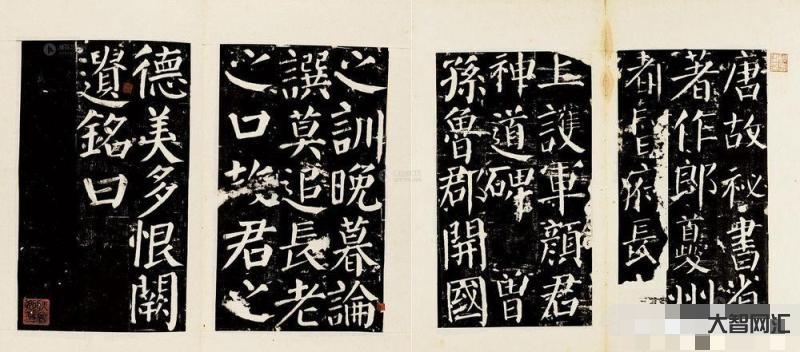 唐故祕書省
著作郎夔州
都督府長
上護軍顏君
神道碑 曾
孫魯郡開國
之訓晚暮論
譔莫追長老
之口故君之
德美多恨闕
遺銘曰
大智网汇